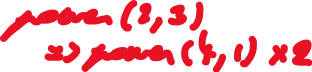 power(2,3)
=> power(4,1) x2